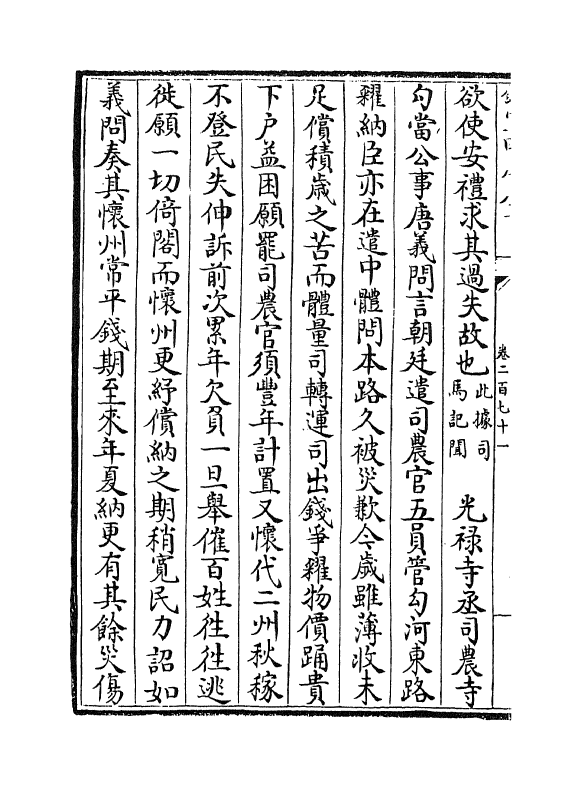 卷二百七十一
欲使安禮求其過失故也此據司馬記聞　光祿寺丞司農寺
勾當公事唐義問言朝廷遣司農官五員管勾河東路
糴納臣亦在遣中體問本路久被災歉今歲雖薄收未
足償積歲之苦而體量司轉運司出錢爭糴物價踊貴
下戶益困願罷司農官須豐年計置又懷代二州秋稼
不登民失伸訴前次累年欠負一旦舉催百姓徃徃逃
徙願一切倚閣而懷州更紓償納之期稍寬民力詔如
義問奏其懷州常平錢期至來年夏納更有其餘災傷